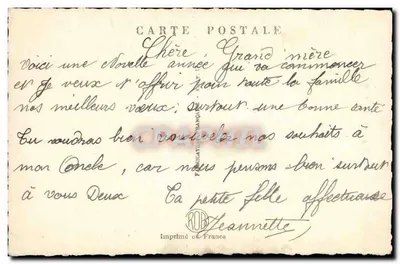 CARTE POSTALE
Chère Grand mère
Voici une Novelle année que va commencer
et je veux t'offrir pour toute la famille
nos meilleurs vœux; surtout une bonne santé
Tu voudras bien nos souhaits à
mon Oncle, car nous pensons bien surtout
à vous Deux Ta petite fille affectueuse
Jeannette
Imprimé en France